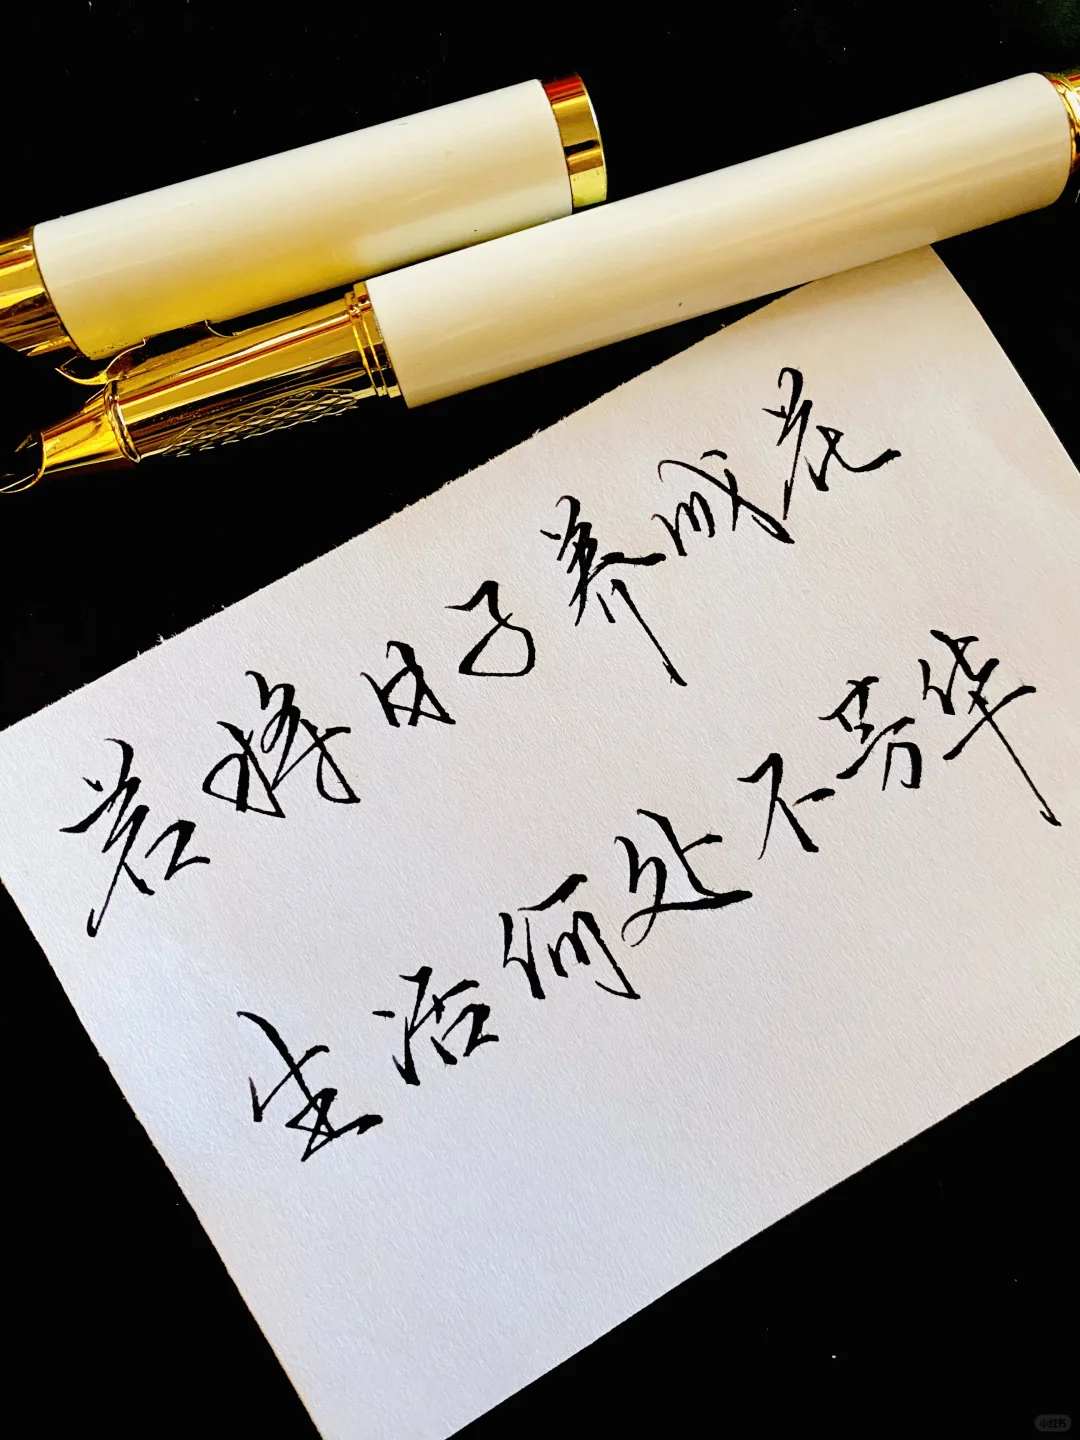 若将日子养成花
生活何处不芳华
小红书